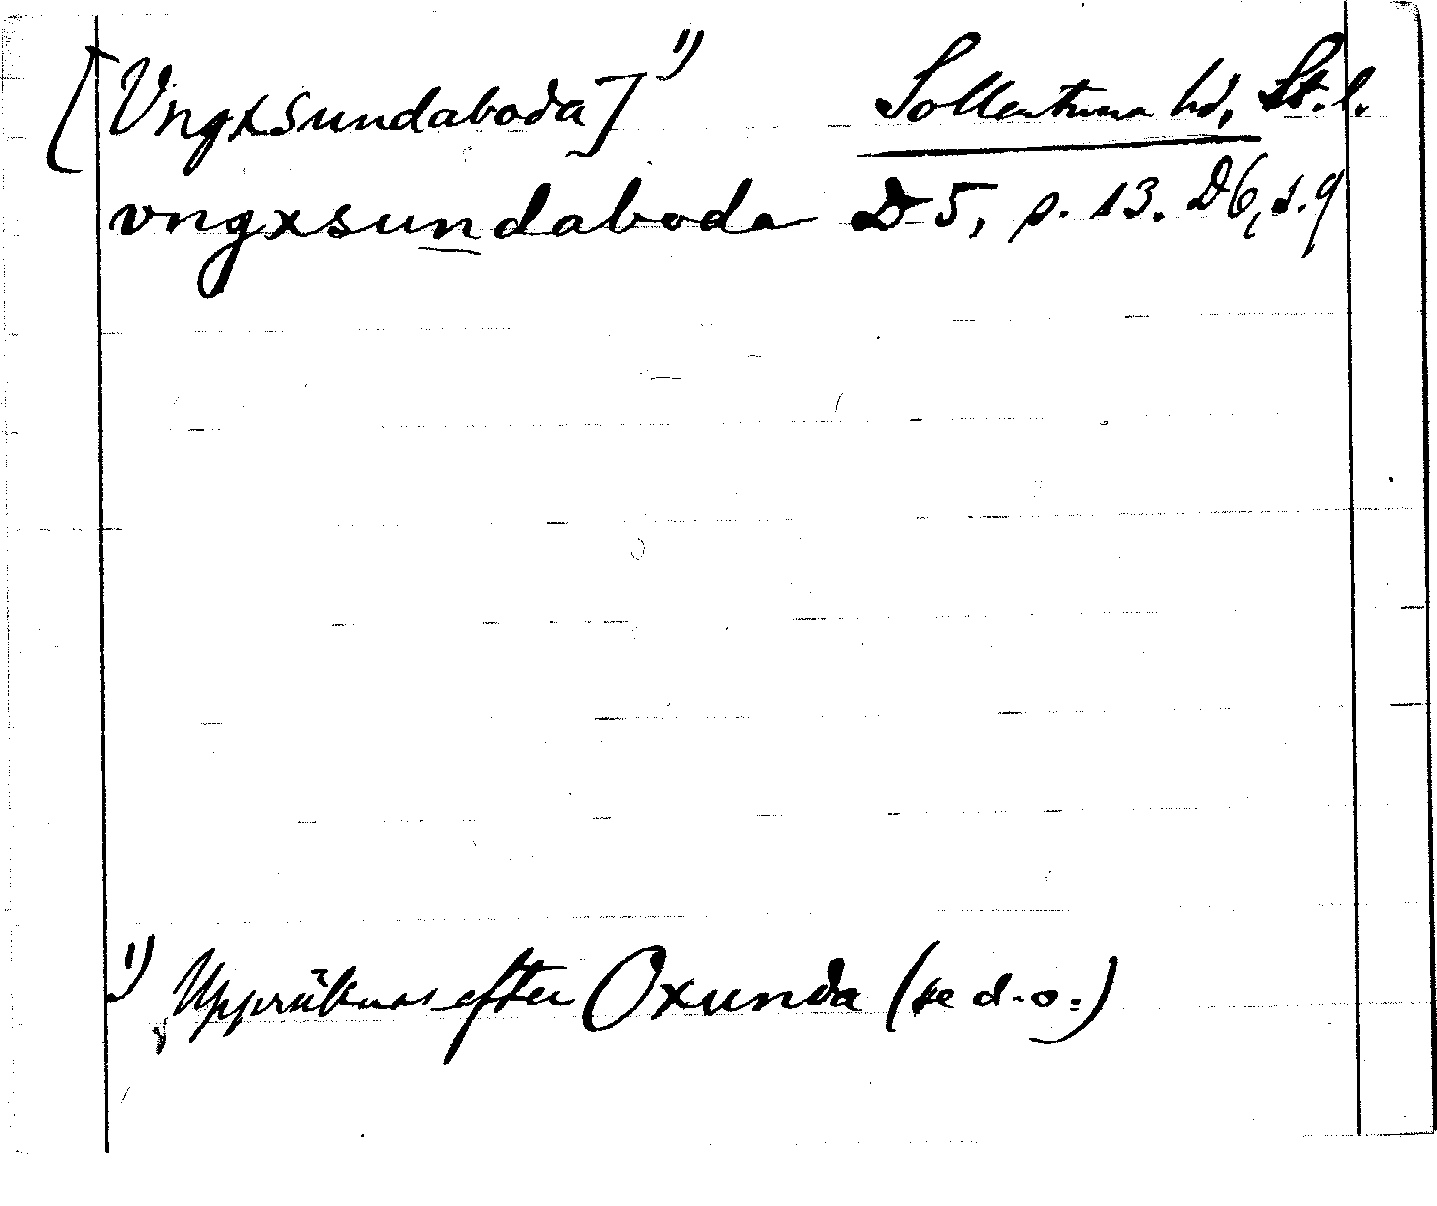 [Vngxsundaboda] 1) Sollentuna hd, St. l.
vngxsundaboda D 5, s. 13. D6, s. 9
1) Uppräknas efter Oxunda (se d. o.)